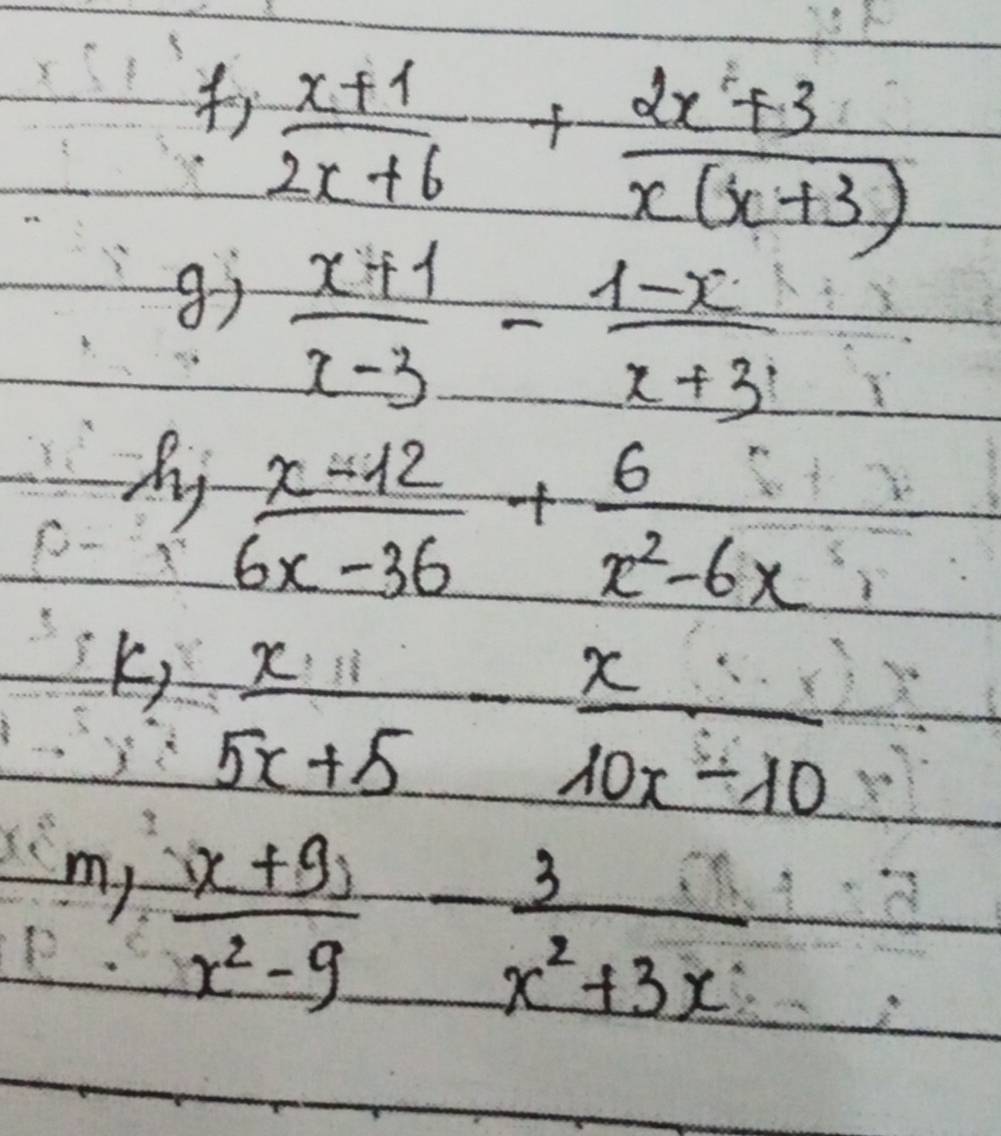 f, (x+1)/(2x+6) + (2x+3)/(x(x+3))
g, (x+1)/(x-3) - (1-x)/(x+3)
h, (x-12)/(6x-36) + 6/(x²-6x)
k, x/(5x+5) - x/(10x-10)
m, (x+9)/(x²-9) - 3/(x²+3x)